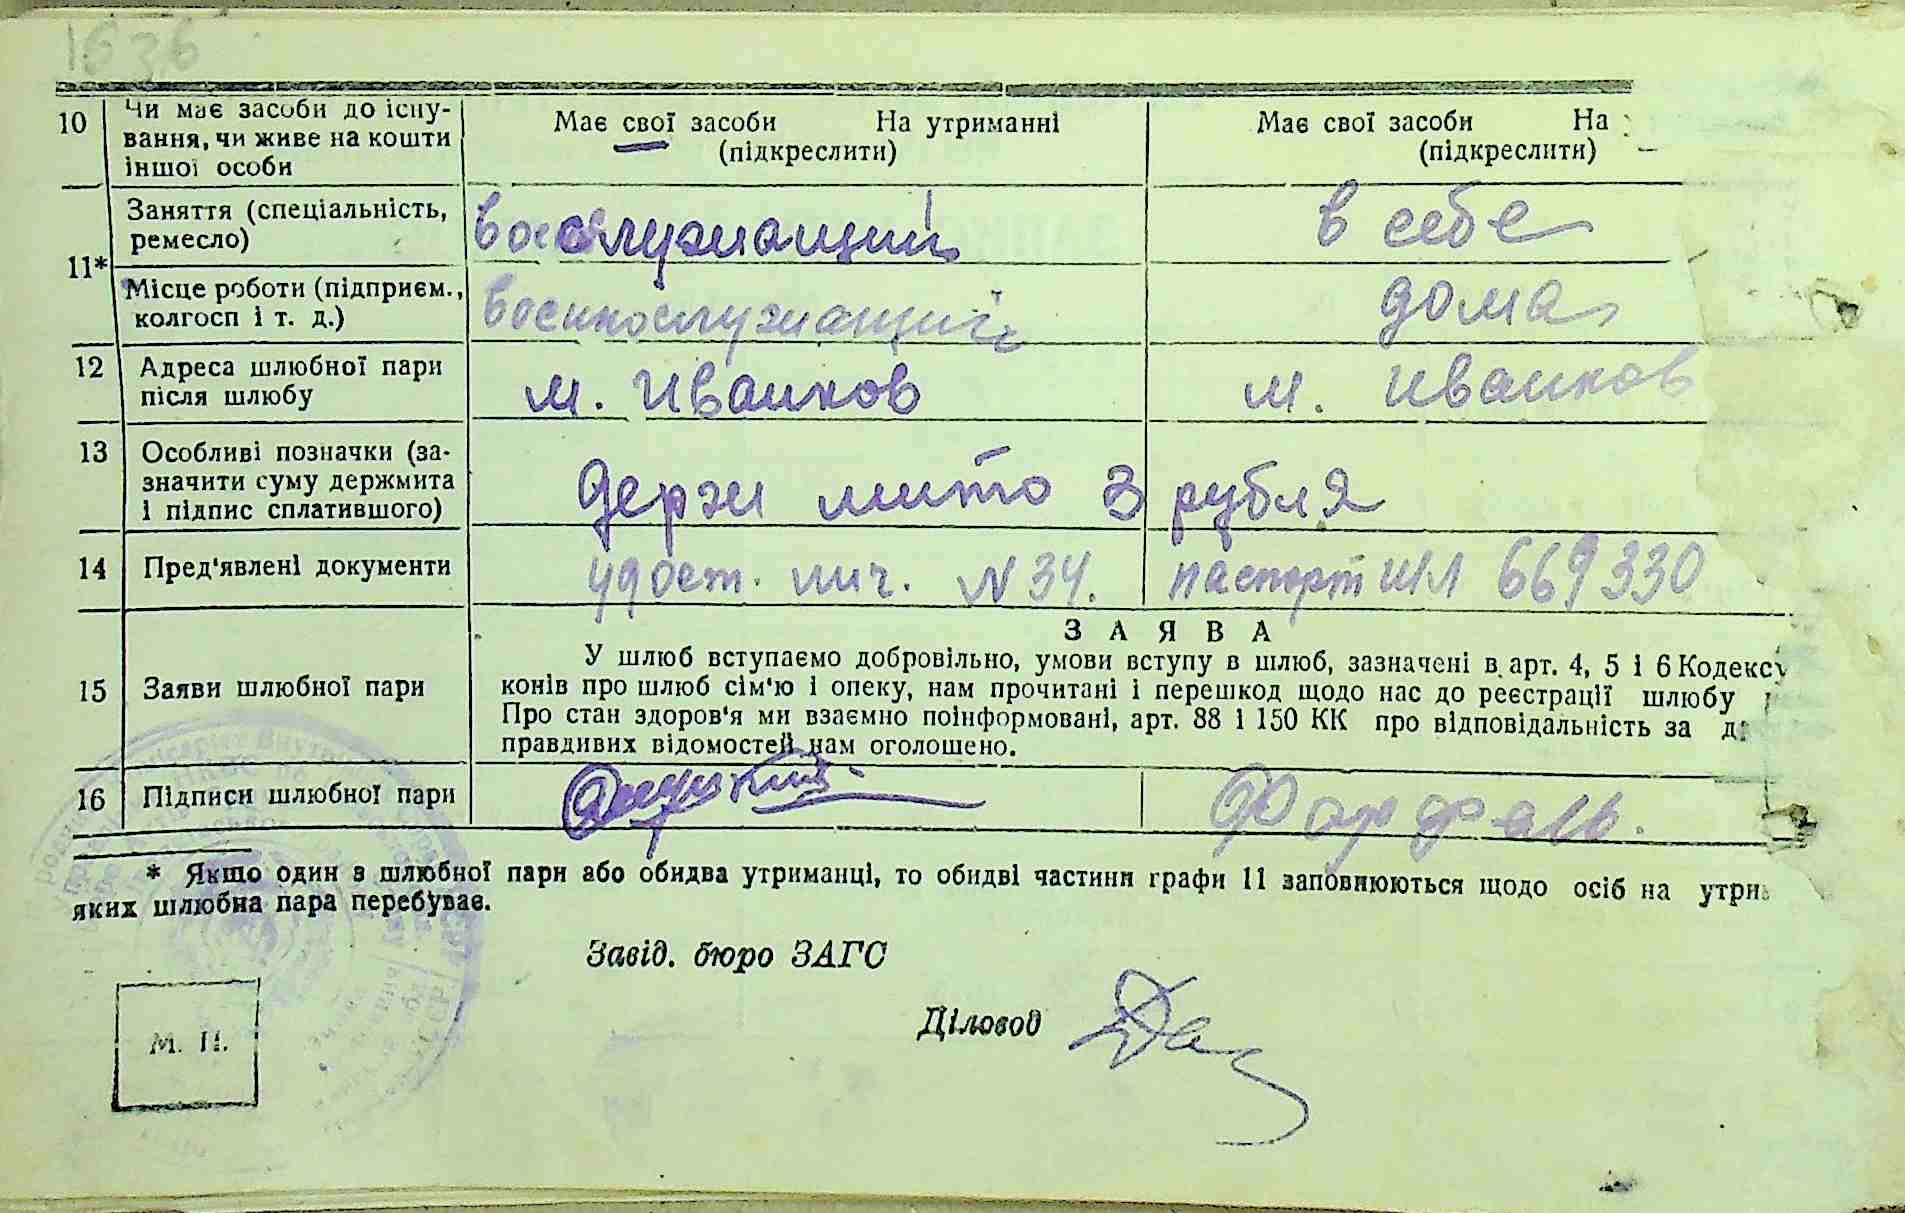 1636
10 Чи має засоби до існу-
вання, чи живе на кошти
іншої особи
Має свої засоби На утриманні
(підкреслити)
Має свої засоби На
(підкреслити)
11*
Заняття (спеціальність,
ремесло)
воеслужащий
в себе
Місце роботи (підприєм.,
колгосп і т. д.)
военнослужащий
дома
12 Адреса шлюбної пари
після шлюбу
м. Иванков
м. Иванков
13 Особливі позначки (за-
значити суму держмита
і підпис сплатившого)
держ мито 3 рубля
14 Пред'явлені документи
удост. лич. N 34.
паспорт 669330
15 Заяви шлюбної пари
ЗАЯВА
У шлюб вступаємо добровільно, умови вступу в шлюб, зазначені в арт. 4, 5 і 6 Кодексу
конів про шлюб сім'ю і опеку, нам прочитані і перешкод щодо нас до реєстрації шлюбу
Про стан здоров'я ми взаємно поінформовані, арт. 88 і 150 КК про відповідальність за
правдивих відомостей нам оголошено.
16 Підписи шлюбної пари
* Якщо один з шлюбної пари або обидва утриманці, то обидві частини графи 11 заповнюються щодо осіб на утри
яких шлюбна пара перебуває.
Завід. бюро ЗАГС
Діловод
М. П.